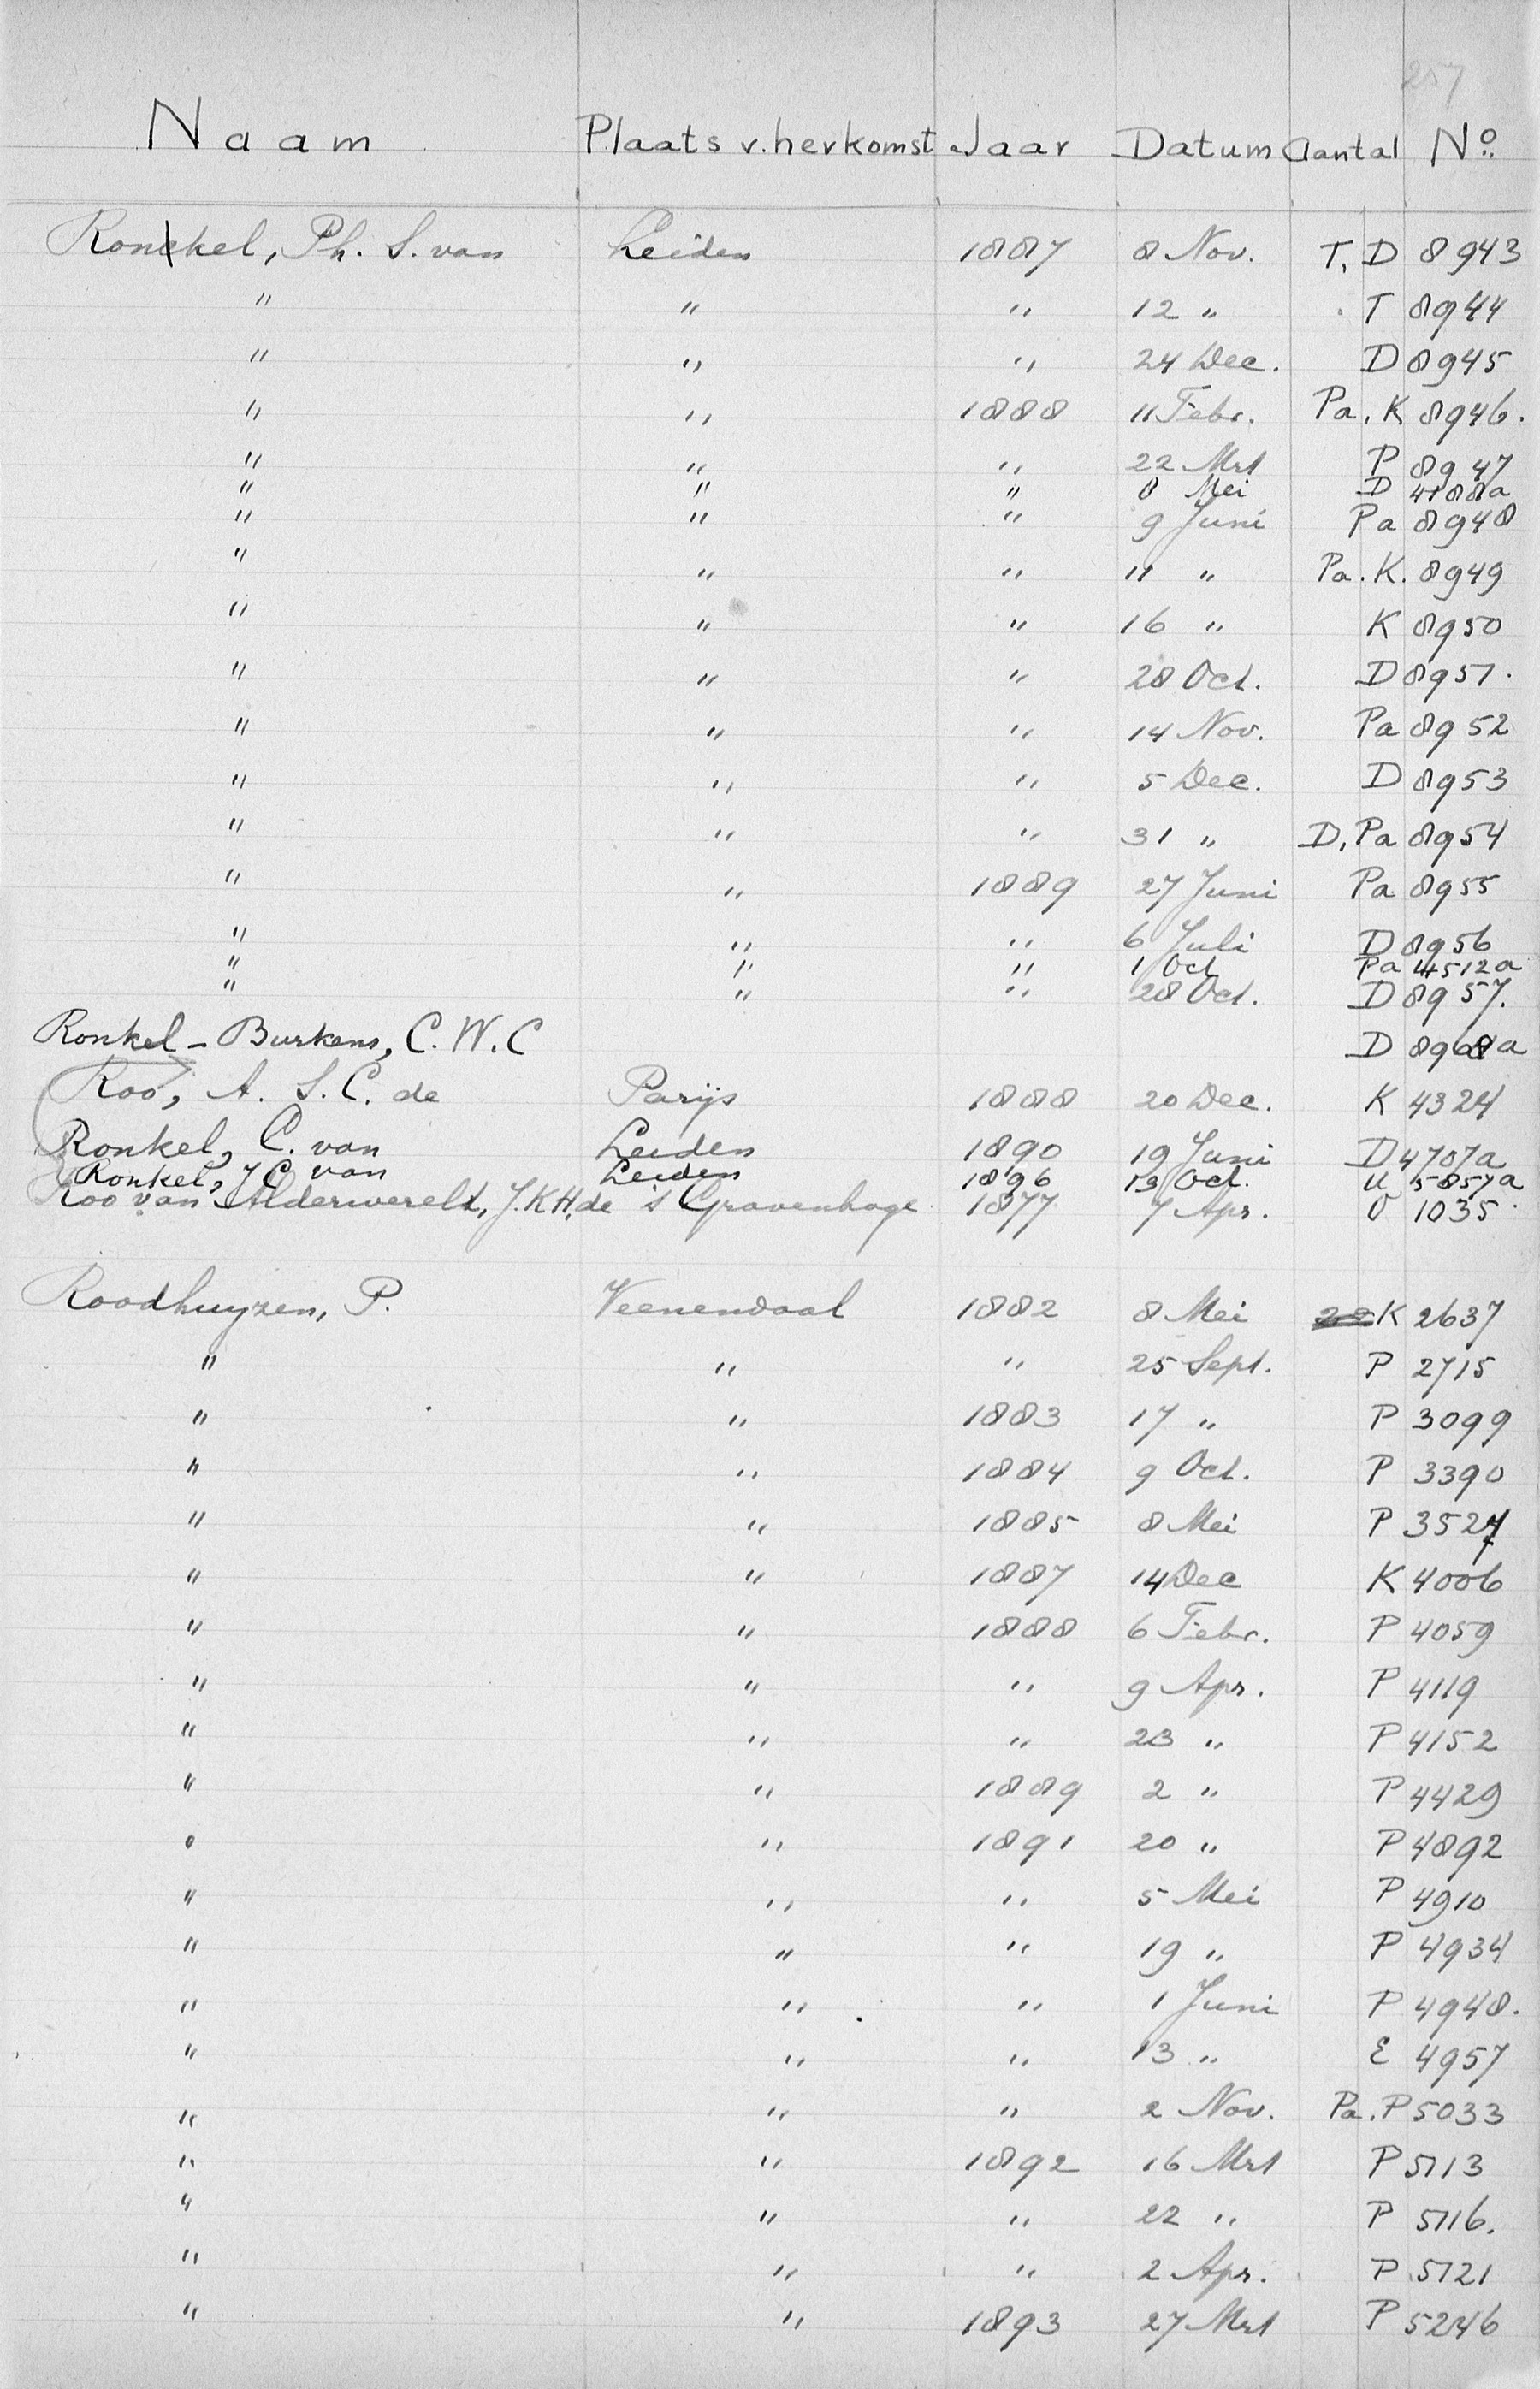 257
Naam Plaats v. herkomst Jaar Datum Aantal No.
Ronckel, Ph. S. van Leiden 1887 8 Nov. T, D 8943
" " " 12 " T 8944
" " " 24 Dec. D 8945
" " 1888 11 Febr. Pa. K 8946.
" " " 22 Mrt P 8947
" " " 8 Mei D 4188a
" " " 9 Juni Pa 8948
" " " 11 " Pa. K. 8949
" " " 16 " K 8950
" " " 28 Oct. D 8951.
" " " 14 Nov. Pa 8952
" " " 5 Dec. D 8953
" " " 31 " D, Pa 8954
" " 1889 27 Juni Pa 8955
" " " 6 Juli D 8956
" " " 1 Oct Pa 4512a
" " " 28 Oct. D 8957.
Ronkel-Burkens, C. W. C D 8968a
Roo, A. S. C. de Parijs 1888 20 Dec. K 4324
Ronkel, C. van Leiden 1890 19 Juni D 4707a
Ronkel, J C van Leiden 1896 13 Oct. U 5857a
Roo van Alderwerelt, J. K H, de 's Gravenhage 1877 7 Apr. O 1035.
Roodhuyzen, P. Veenendaal 1882 8 Mei K 2637
" " " 25 Sept. P 2715
" " 1883 17 " P 3099
" " 1884 9 Oct. P 3390
" " 1885 8 Mei P 3527
" " 1887 14 Dec K 4006
" " 1888 6 Febr. P 4059
" " " 9 Apr. P 4119
" " " 23 " P 4152
" " 1889 2 " P 4429
" " 1891 20 " P 4892
" " " 5 Mei P 4910
" " " 19 " P 4934
" " " 1 Juni P 4948.
" " " 13 " E 4957
" " " 2 Nov. Pa. P 5033
" " 1892 16 Mrt P 5113
" " " 22 " P 5116.
" " " 2 Apr. P 5121
" " 1893 27 Mrt P 5246